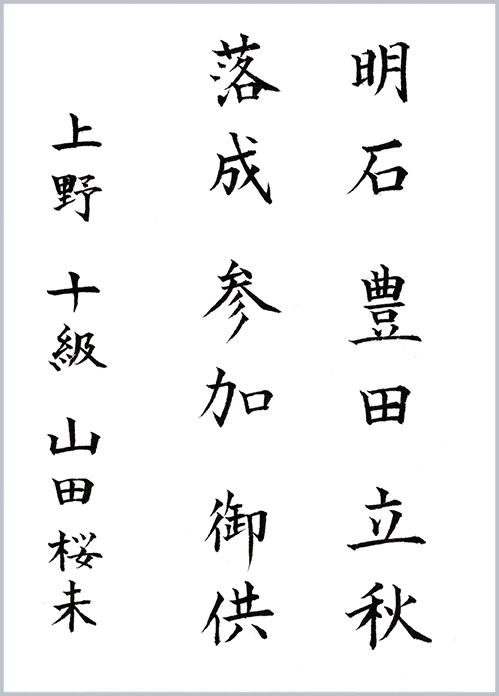 明石 豊田 立秋
落成 参加 御供
上野 十級 山田桜未